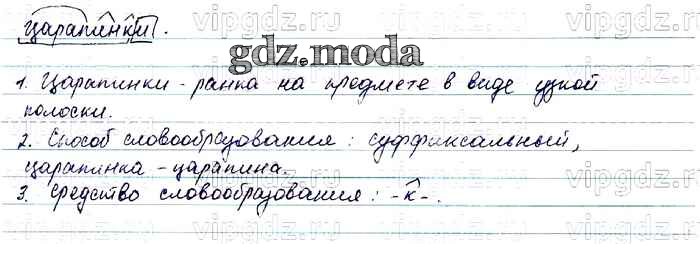 царапинки.
gdz.moda
1. Царапинки - ранка на предмете в виде узкой
полоски.
2. Способ словообразования: суффиксальный,
царапинка - царапина.
3. Средство словообразования: -к-.
vipgdz.ru